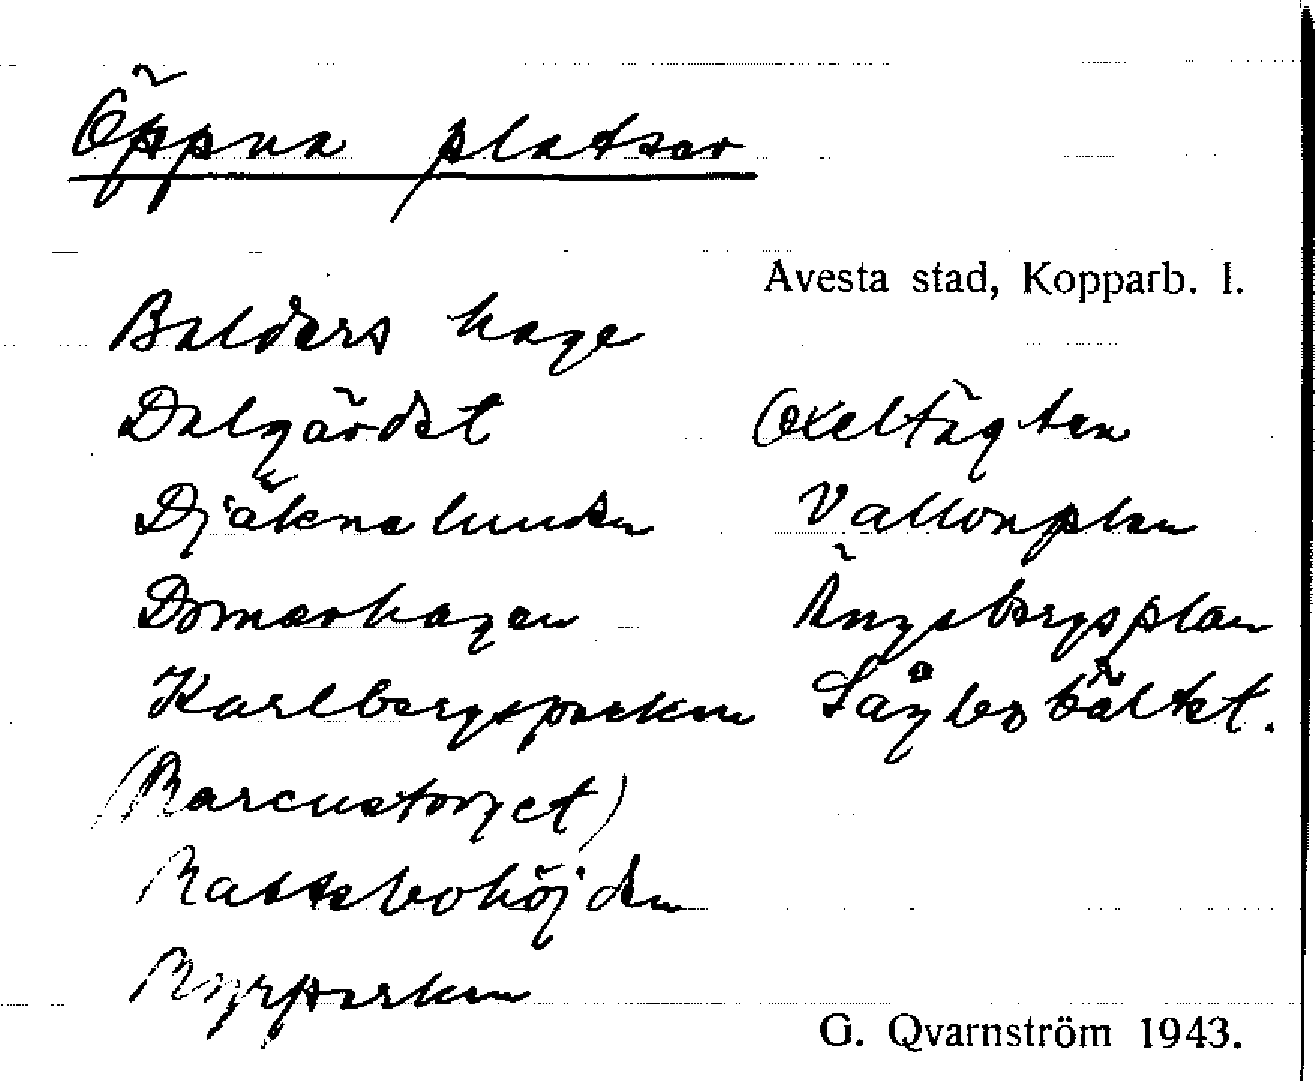 Öppna platser
Avesta stad, Kopparb. l.
Balders hage
Dalgärdet
Djäknelunden
Domarhagen
Karlbergsparken
(Marcustorget)
Mattsbohöjden
Myrparken
Oxeltägten
Vallonplan
Ängsbergsplan
Sågbobältet.
G. Qvarnström 1943.